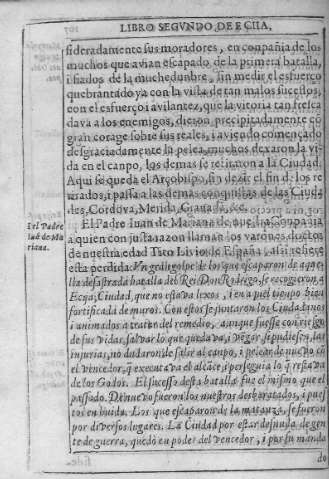 LIBRO SEGVNDO DE ECIIA,
sideradamente sus moradores, en conpañia de los
muchos que avian escapado de la primera batalla,
i fiados de la muchedunbre, sin medir el esfuerço
quebrantado ya con la vista de tan malos sucessos,
con el esfuerço i avilantez, que la vitoria tan fresca
dava a los enemigos, dieron precipitadamente có
gran corage sobre sus reales, i aviendo començado
desgraciadamente la pelea, muchos dexaron la vi-
da en el canpo, los demas se retiraron a la Ciudad.
Aqui se queda el Arçobispo, sin dezir el fin de los re
tirados, i passa a las demas conquistas de las Ciuda
des, Cordova, Merida, Granada, &c.
El Padre Iuan de Mariana de la Conpañia
a quien con justa razon llaman los varones doctos
de nuestra edad Tito Livio de España, assi refiere
esta perdida: Vn gran golpe de los que escaparon de aque-
lla desastrada batalla del Rei Don Rodrigo, se recogieron a
Ecija, Ciudad, que no estava lexos, i en aquel tienpo bien
fortificada de muros. Con estos se juntaron los Ciudadanos
i animados a tratar del remedio, aunque fuesse con riesgo
de sus vidas, salvar lo que quedava, i vegar si pudiessen, las
injurias, no dudaron de salir al canpo, i pelear de nuevo có
el vencedor, q̃ executava el alcáce i perseguia lo q̃ restava
de los Godos. El sucesso desta batalla fue el mismo que el
passado. De nuevo fueron los nuestros desbaratados, i pues
tos en huida. Los que escaparon de la matança, se fueron
por diversos lugares. La Ciudad por estar desnuda de gen
te de guerra, quedò en poder del vencedor, i por su mando
do
El Padre
Iuã de Ma
riana.